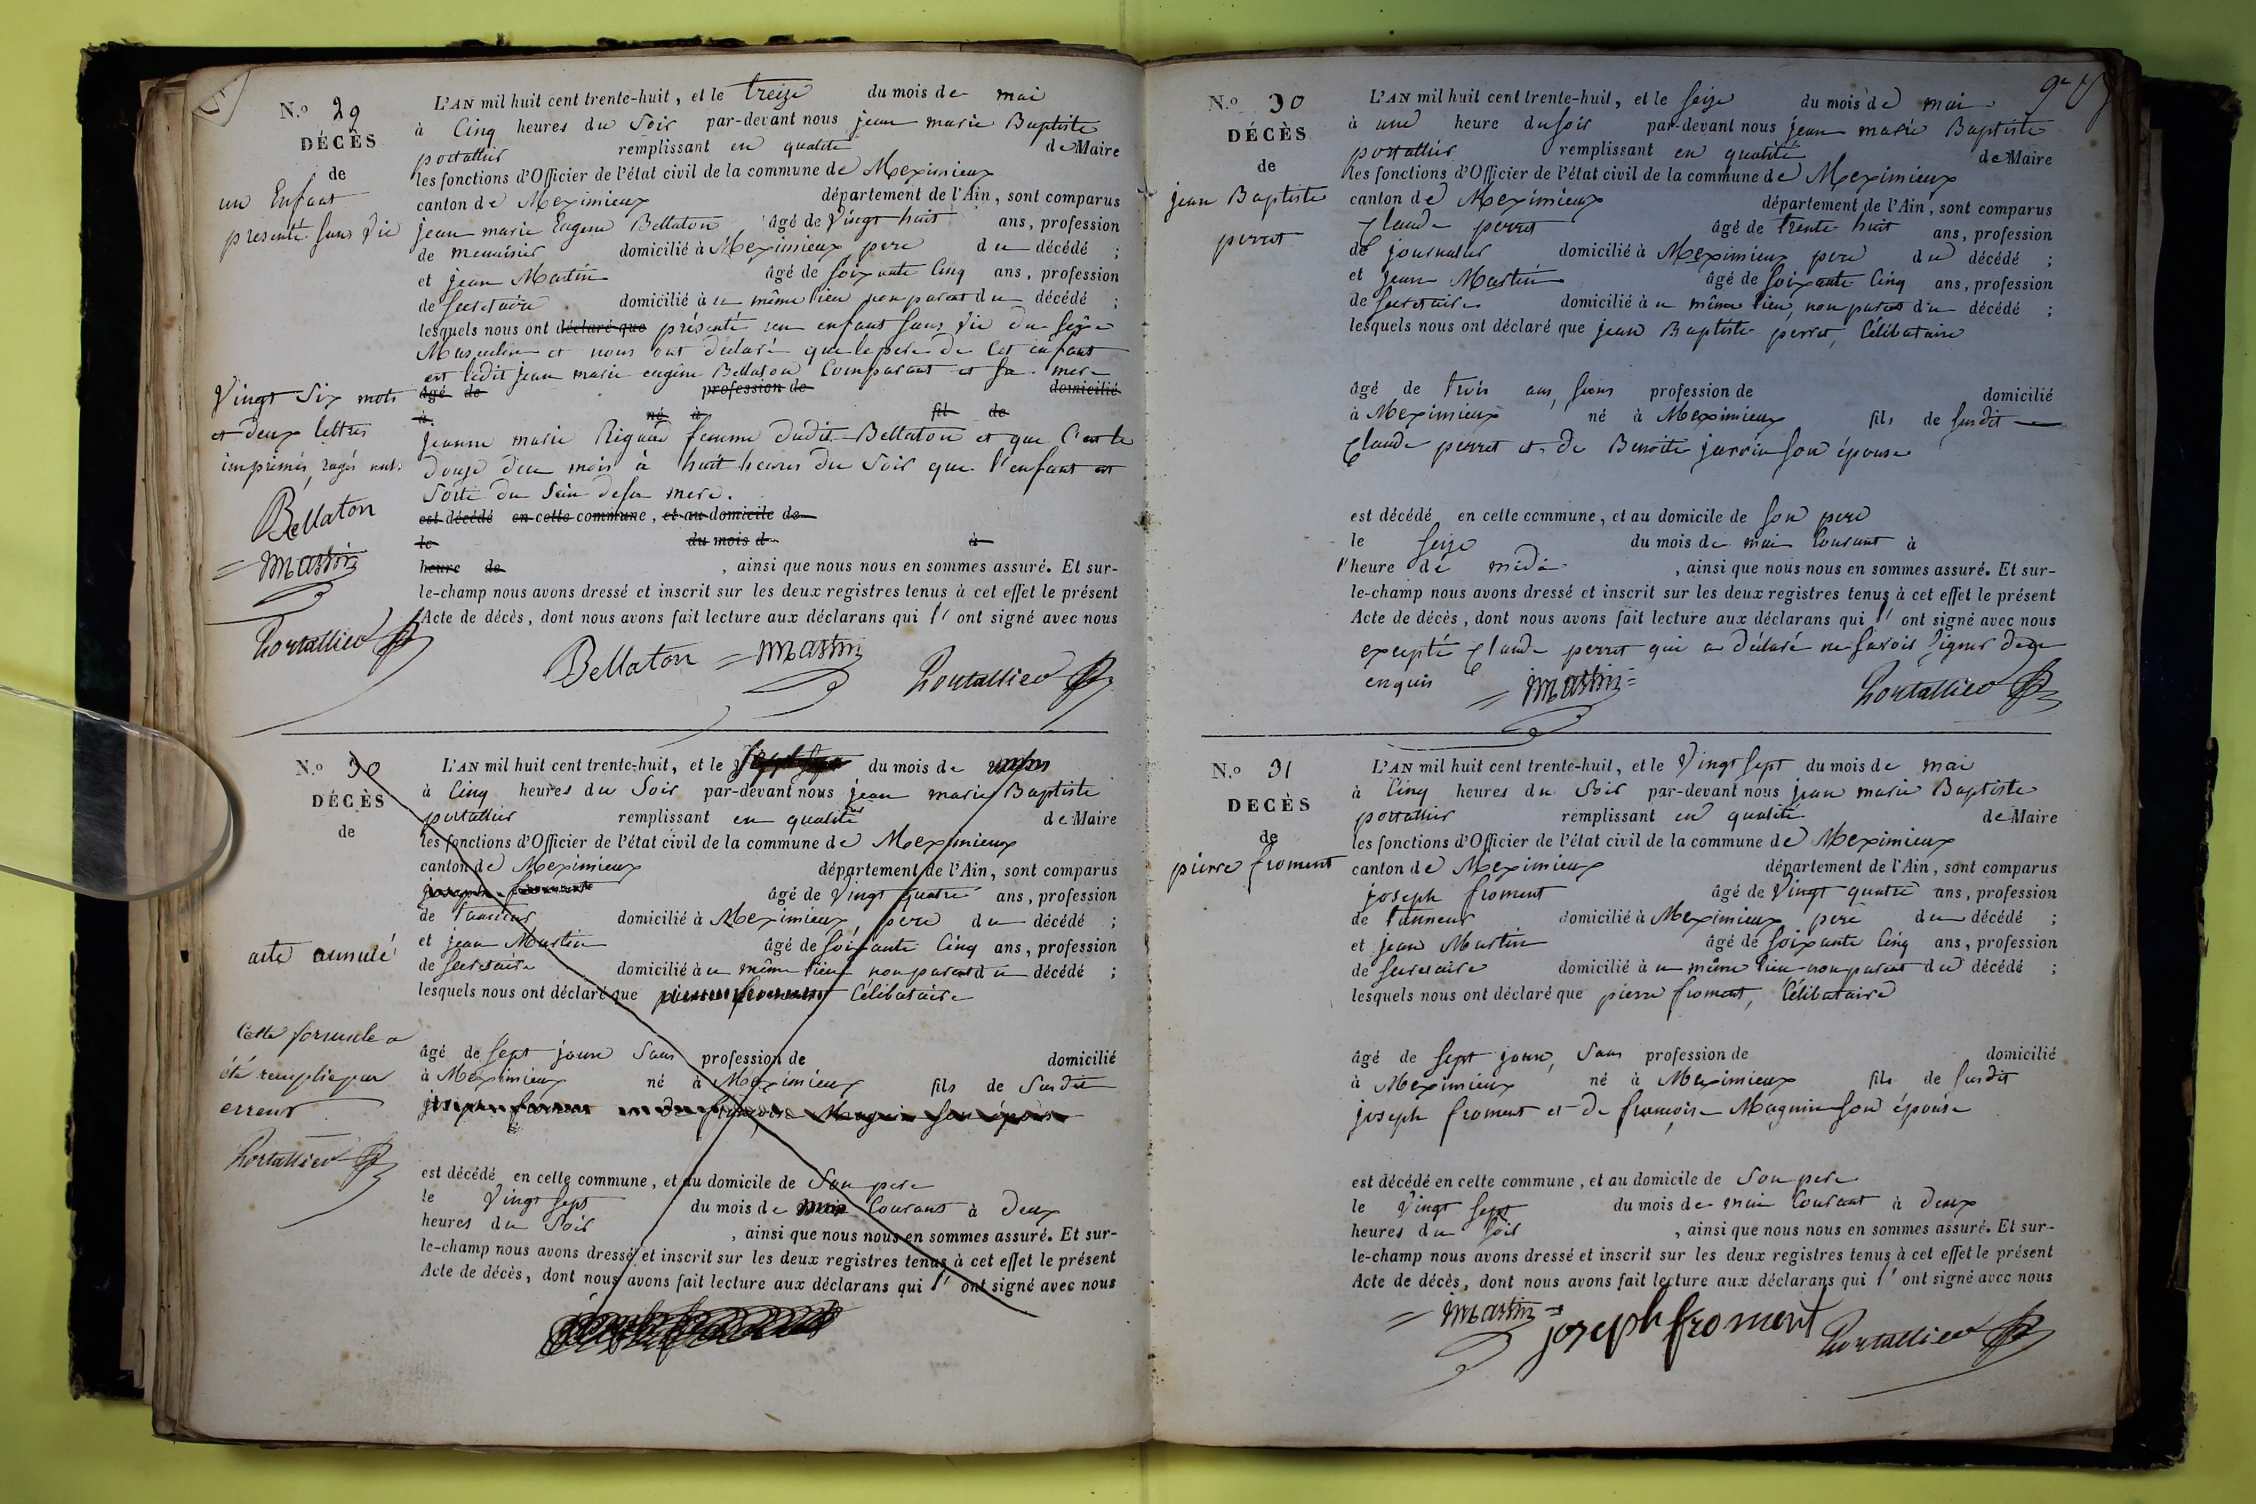 N.o 29
DÉCÈS
de
un Enfant
presenté sans vie
L'AN mil huit cent trente-huit, et le treize du mois de mai
à Cinq heures du Soir par-devant nous jean marie Baptiste
portallier remplissant en qualité de Maire
les fonctions d'Officier de l'état civil de la commune de Meximieux
canton de Meximieux département de l'Ain, sont comparus
jean marie Eugene Bellaton âgé de Vingt huit ans, profession
de menuisier domicilié à Meximieux pere du décédé ;
et jean Martin âgé de soixante Cinq ans, profession
de secretaire domicilié à u même lieu non parent du décédé ;
lesquels nous ont déclaré que présenté un enfant sans vie du sexe
Masculin et nous ont déclaré que le pere de cet enfant
est ledit jean marie eugene Bellaton Comparant et sa mere
âgé de profession de domicilié
à né à fil de
jeanne marie Rigaud femme dudit Bellaton et que C'est le
douze du mois à huit heures du Soir que l'enfant est
Sorti du Sein de sa mere.
est décédé en cette commune, et au domicile de
le du mois d à
heure de , ainsi que nous nous en sommes assuré. Et sur-
le-champ nous avons dressé et inscrit sur les deux registres tenus à cet effet le présent
Acte de décès, dont nous avons fait lecture aux déclarans qui l' ont signé avec nous
Vingt Six mots
et deux lettres
imprimés, rayés nuls
Bellaton
Martin
Portallier
Bellaton Martin Portallier
N.o 30
DÉCÈS
de
L'AN mil huit cent trente-huit, et le du mois de
à Cinq heures du Soir par-devant nous jean marie Baptiste
portallier remplissant en qualité de Maire
les fonctions d'Officier de l'état civil de la commune de Meximieux
canton de Meximieux département de l'Ain, sont comparus
âgé de Vingt quatre ans, profession
de tanneur domicilié à Meximieux pere du décédé ;
et jean Martin âgé de soixante Cinq ans, profession
de secretaire domicilié à u même lieu non parent du décédé ;
lesquels nous ont déclaré que Célibataire
âgé de sept jours Sans profession de domicilié
à Meximieux né à Meximieux fils de Susdit
de françoise Magnin son épouse
est décédé en cette commune, et au domicile de Son pere
le Vingt sept du mois de mai Courant à deux
heures du Soir , ainsi que nous nous en sommes assuré. Et sur-
le-champ nous avons dressé et inscrit sur les deux registres tenus à cet effet le présent
Acte de décès, dont nous avons fait lecture aux déclarans qui l' ont signé avec nous
acte annulé
Cette formule a
été remplie par
erreur
Portallier
N.o 30
DÉCÈS
de
jean Baptiste
perret
L'AN mil huit cent trente-huit, et le seize du mois de mai
à une heure du soir par-devant nous jean marie Baptiste
portallier remplissant en qualité de Maire
les fonctions d'Officier de l'état civil de la commune de Meximieux
canton de Meximieux département de l'Ain, sont comparus
Claude perret âgé de trente huit ans, profession
de journalier domicilié à Meximieux pere du décédé ;
et jean Martin âgé de soixante Cinq ans, profession
de secretaire domicilié à u même lieu, non parent du décédé ;
lesquels nous ont déclaré que jean Baptiste perret, Célibataire
âgé de trois ans, sans profession de domicilié
à Meximieux né à Meximieux fils de susdit
Claude perret et de Benoite son épouse
est décédé en cette commune, et au domicile de son pere
le seize du mois de mai Courant à
l'heure de midi , ainsi que nous nous en sommes assuré. Et sur-
le-champ nous avons dressé et inscrit sur les deux registres tenus à cet effet le présent
Acte de décès, dont nous avons fait lecture aux déclarans qui l' ont signé avec nous
excepté Claude perret qui a déclaré ne savoir signer de ce
enquis Martin Portallier
N.o 31
DECÈS
de
pierre froment
L'AN mil huit cent trente-huit, et le Vingt sept du mois de mai
à Cinq heures du Soir par-devant nous jean marie Baptiste
portallier remplissant en qualité de Maire
les fonctions d'Officier de l'état civil de la commune de Meximieux
canton de Meximieux département de l'Ain, sont comparus
joseph froment âgé de Vingt quatre ans, profession
de tanneur domicilié à Meximieux pere du décédé ;
et jean Martin âgé de soixante Cinq ans, profession
de secretaire domicilié à u même lieu non parent du décédé ;
lesquels nous ont déclaré que pierre froment, Célibataire
âgé de sept jours, Sans profession de domicilié
à Meximieux né à Meximieux fils de susdit
joseph froment et de françoise Magnin son épouse
est décédé en cette commune, et au domicile de Son pere
le Vingt sept du mois de mai Courant à deux
heures du soir , ainsi que nous nous en sommes assuré. Et sur-
le-champ nous avons dressé et inscrit sur les deux registres tenus à cet effet le présent
Acte de décès, dont nous avons fait lecture aux déclarans qui l' ont signé avec nous
Martin joseph froment Portallier